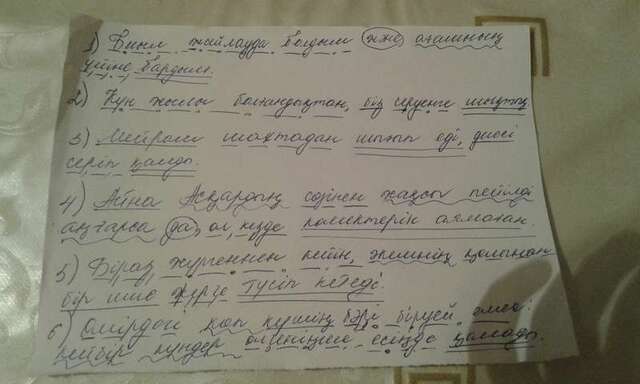 1) Биыл жайлауда болдым және ағамның
үйіне бардым.
2) Күн жылы болғандықтан, біз серуенге шықтық
3) Мейрам шахтадан шығып еді, денесі
серіп қалды.
4) Айна Асқардың сөзінен жақсы пейілді
аңғарса да, ол кезде көмектерін аямаған.
5) Біраз жүргеннен кейін, жемнің қалыңнан
бір ише жерге түсіп кетеді.
6) Өмірдегі көп күннің бәрі бірдей емес:
кейбір күндер өлгеніңше есіңде қалады.